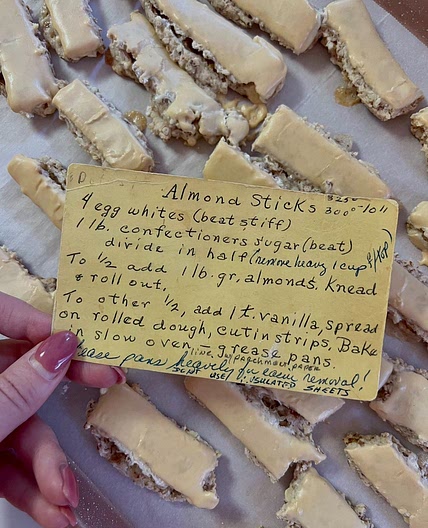 Almond Sticks
325°
300°-10-11
4 egg whites (beat stiff)
1 lb. confectioners sugar (beat)
divide in half (remove heavy 1 cup f/top)
To 1/2 add 1 lb. gr. almonds. Knead
& roll out,
To other 1/2, add 1 t. vanilla, spread
on rolled dough, cut in strips. Bake
in slow oven - grease pans.
(LINE W/PARCHMENT PAPER
Grease pans heavily for easier removal!
DON'T USE INSULATED SHEETS